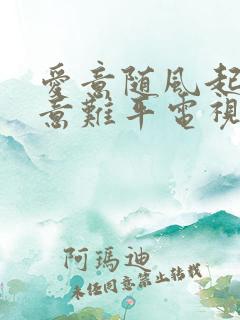 愛意随風起
意難平電視
阿瑪迪
未经同意禁止转载